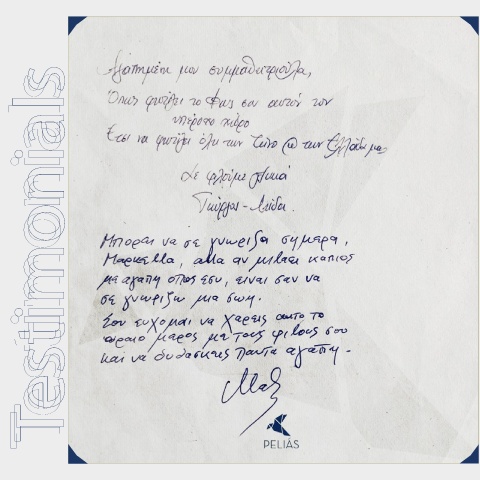 Testimonials
Αγαπημένη μου συμμαθητριούλα,
Όπως φωτίζει το φως σου αυτόν τον
υπέροχο χώρο
Έτσι να φωτίζει όλη την Τήνο @ την Ελλάδα μας
Σε φιλούμε γλυκά
Γιώργος - Λήδα.
Μπορει να σε γνωριζα σημερα,
Μαρκελλα, αλλα αν μιλαει καποιος
με αγαπη οπως εσυ, ειναι σαν να
σε γνωριζω μια ζωη.
Σου ευχομαι να χαρεις αυτο το
ωραιο μερος με τους φιλους σου
και να διδασκεις παντα αγαπη -
PELIÁS